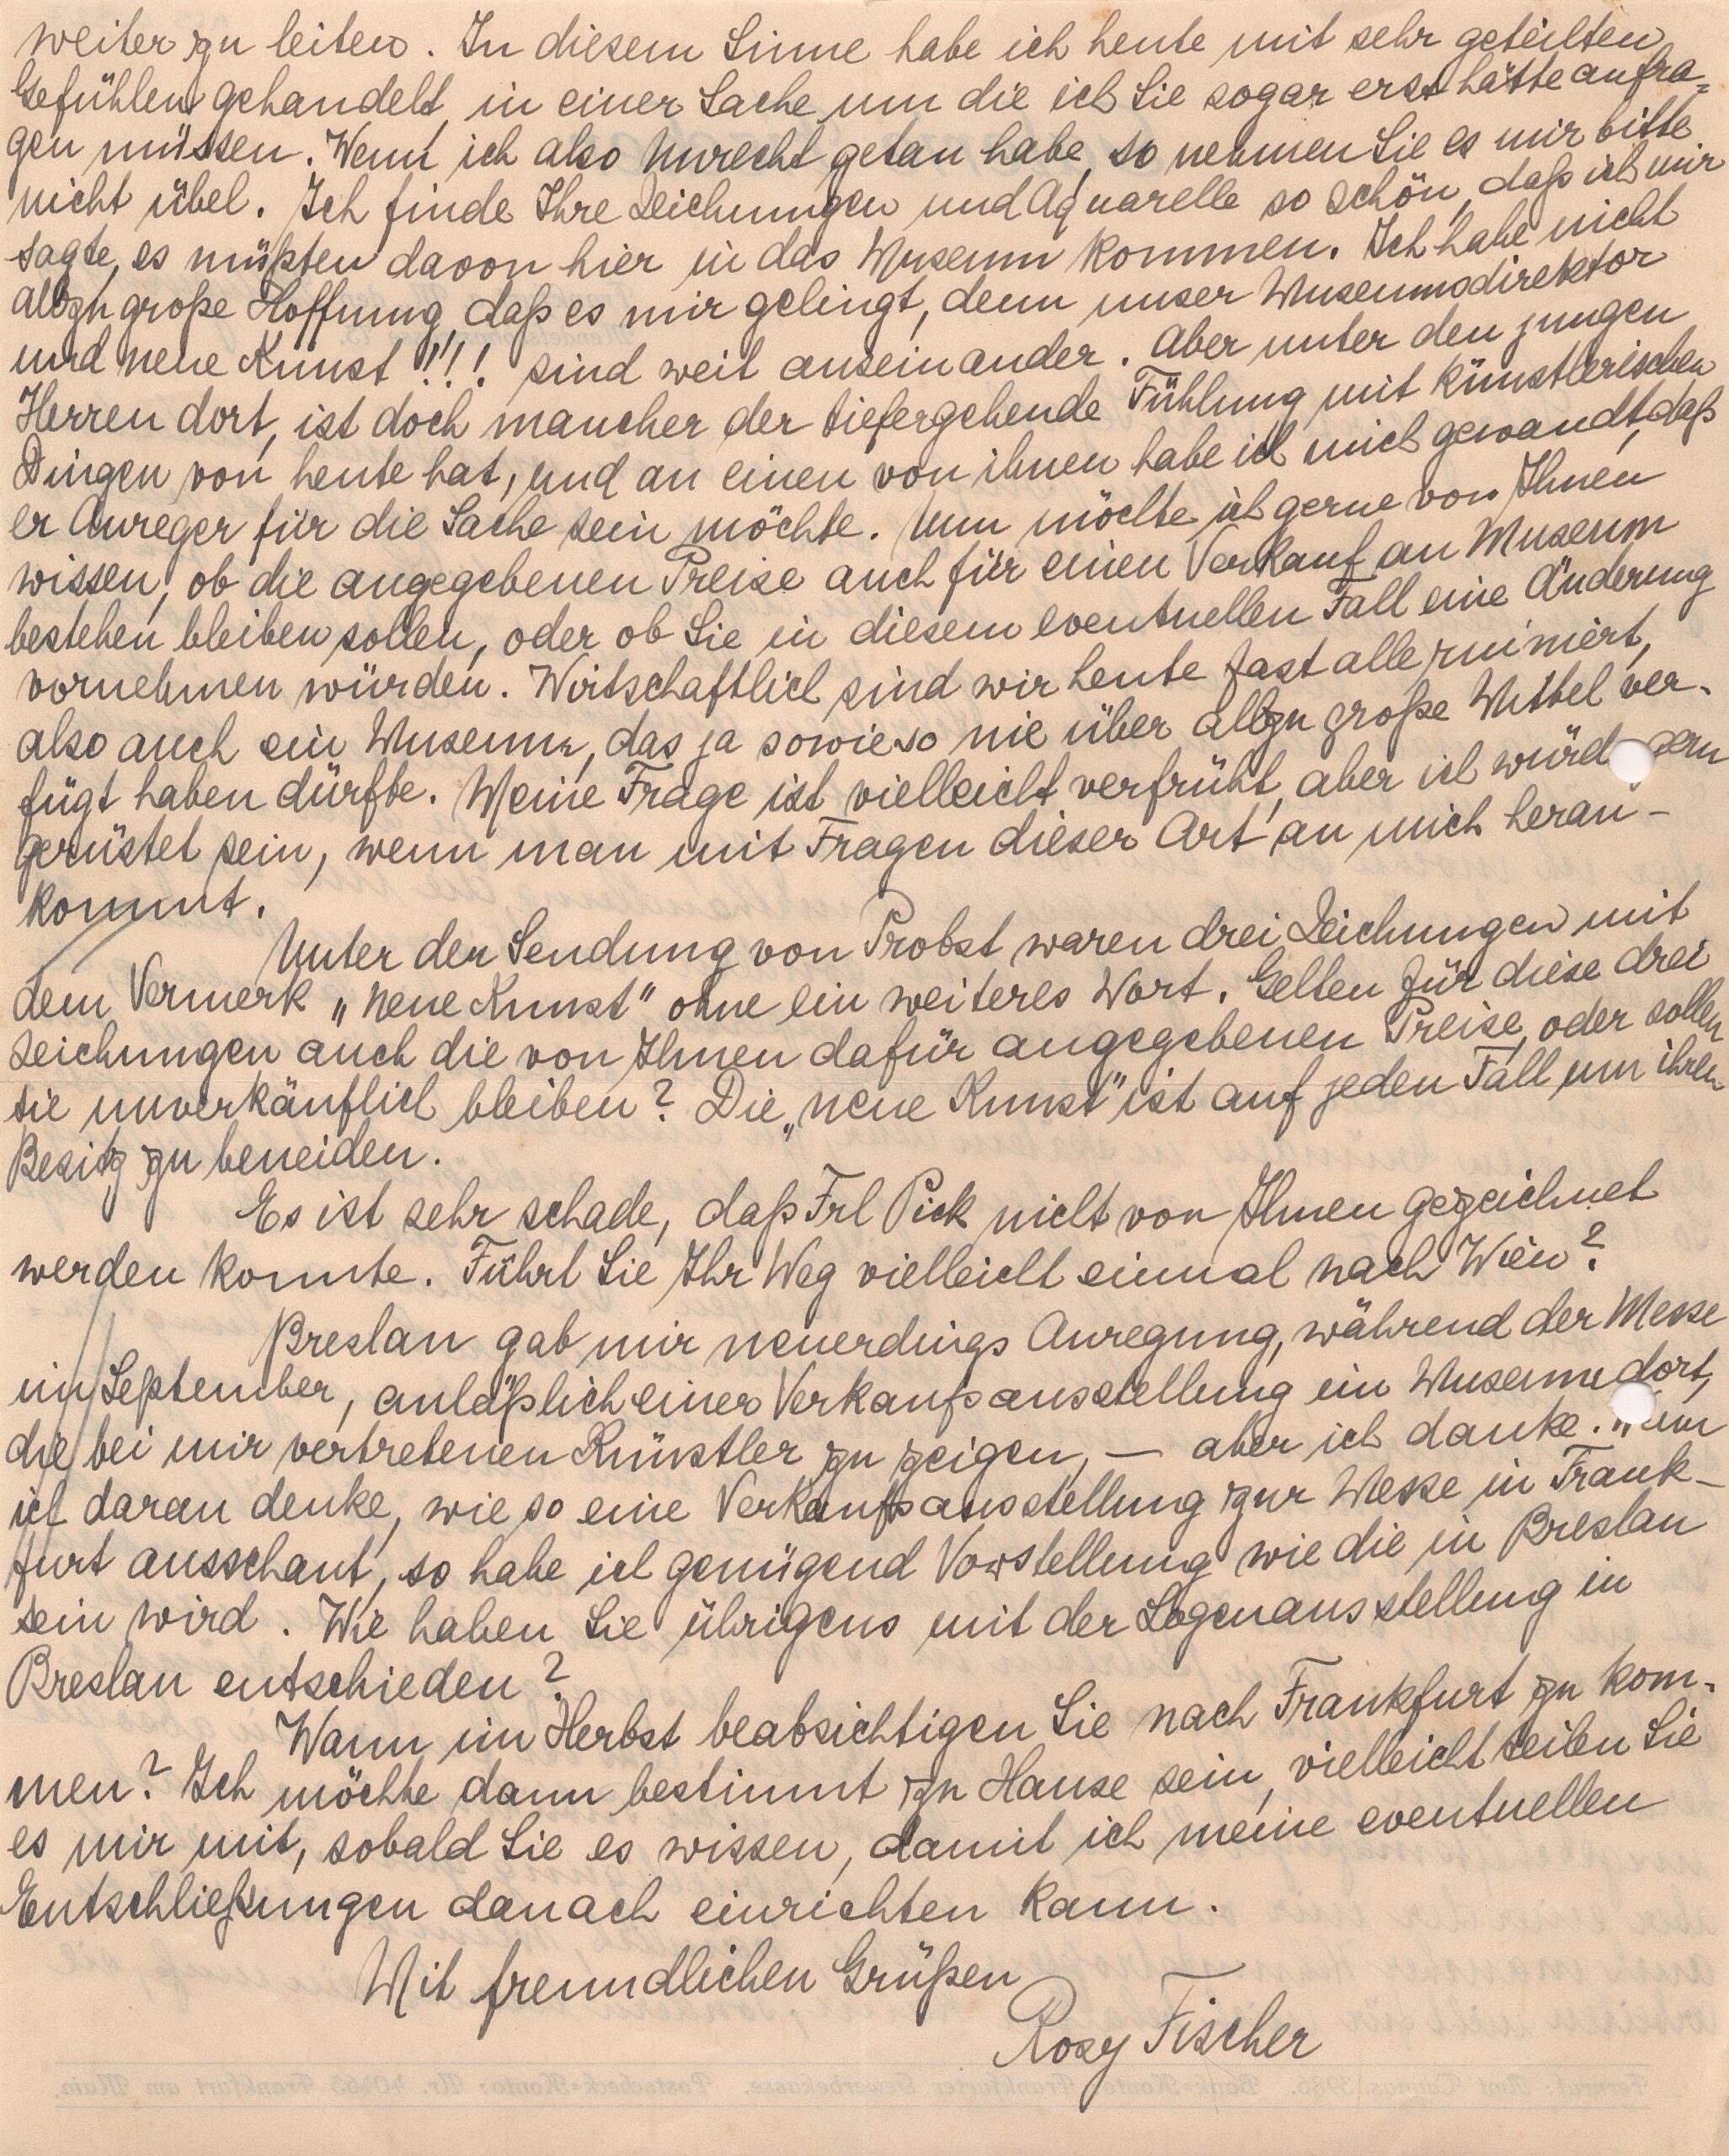 weiter zu leiten. In diesem Sinne habe ich heute mit sehr geteilten
Gefühlen gehandelt, in einer Sache um die ich Sie sogar erst hätte anfra-
gen müssen. Wenn ich also Unrecht getan habe, so nehmen Sie es mir bitte
nicht übel. Ich finde Ihre Zeichnungen und Aquarelle so schön, daß ich mir
sagte, es müßten davon hier in das Museum kommen. Ich habe nicht
allzu große Hoffnung, daß es mir gelingt, denn unser Museumsdirektor
und neue Kunst !!!! sind weit auseinander. Aber unter den jungen
Herren dort, ist doch mancher der tiefergehende Fühlung mit künstlerischen
Dingen von heute hat, und an einen von ihnen habe ich mich gewandt, daß
er Anreger für die Sache sein möchte. Nun möchte ich gerne von Ihnen
wissen, ob die angegebenen Preise auch für einen Verkauf an Museum
bestehen bleiben sollen, oder ob Sie in diesem eventuellen Fall eine Änderung
vornehmen würden. Wirtschaftlich sind wir heute fast alle ruiniert,
also auch ein Museum, das ja sowieso nie über allzu große Mittel ver-
fügt haben dürfte. Meine Frage ist vielleicht verfrüht, aber ich würd gern
gerüstet sein, wenn man mit Fragen dieser Art an mich heran-
kommt.
Unter der Sendung von Probst waren drei Zeichnungen mit
dem Vermerk „neue Kunst" ohne ein weiteres Wort. Gelten für diese drei
Zeichnungen auch die von Ihnen dafür angegebenen Preise, oder sollen
sie unverkäuflich bleiben? Die „neue Kunst" ist auf jeden Fall um ihren
Besitz zu beneiden.
Es ist sehr schade, daß Frl Pick nicht von Ihnen gezeichnet
werden konnte. Führt Sie Ihr Weg vielleicht einmal nach Wien?
Breslau gab mir neuerdings Anregung, während der Messe
im September, anläßlich einer Verkaufsausstellung im Museum dort,
die bei mir vertretenen Künstler zu zeigen, — aber ich danke. Wenn
ich daran denke, wie so eine Verkaufsausstellung zur Messe in Frank-
furt ausschaut, so habe ich genügend Vorstellung wie die in Breslau
sein wird. Wie haben Sie übrigens mit der Logenausstellung in
Breslau entschieden?
Wann im Herbst beabsichtigen Sie nach Frankfurt zu kom-
men? Ich möchte dann bestimmt zu Hause sein, vielleicht teilen Sie
es mir mit, sobald Sie es wissen, damit ich meine eventuellen
Entschließungen danach einrichten kann.
Mit freundlichen Grüßen
Rosy Fischer